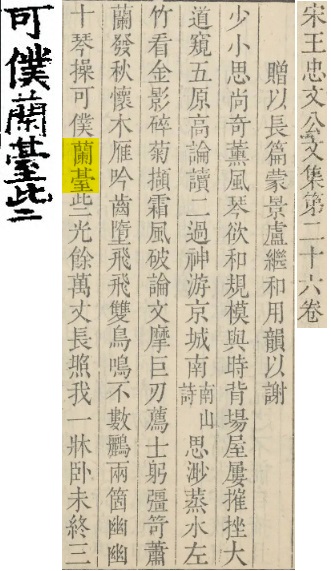 宋王忠文公文集第二十六卷
贈以長篇蒙景盧繼和用韻以謝
少小思尚奇薰風琴欲和規模與時背場屋屢摧挫大
道窺五原高論讀二過神游京城南南山詩思渺蒸水左
竹看金影碎菊擷霜風破論文摩巨刃薦士躬彊笴蕭
蘭發秋懷木雁吟齒墮飛飛雙鳥鳴不數鸝兩箇幽幽
十琴操可僕蘭臺些光餘萬丈長照我一牀臥未終三
可僕蘭臺些